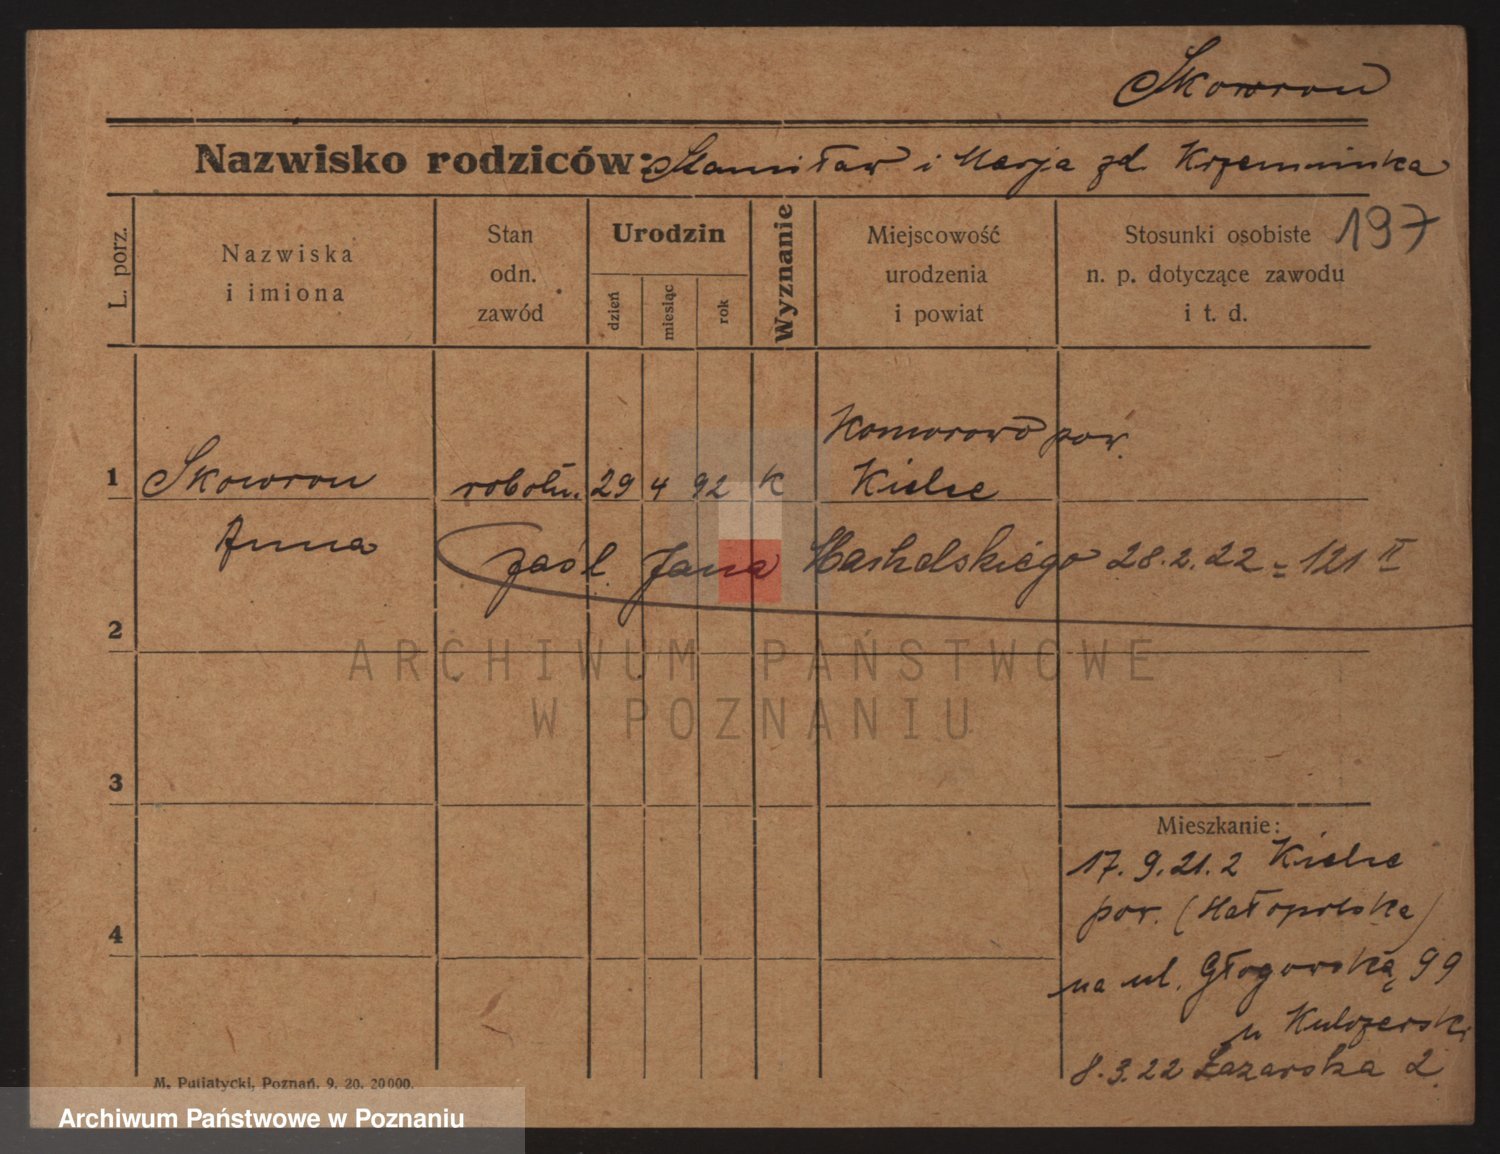 Skowron
Nazwisko rodziców: Stanisław i Marja zd. Krzeminska
197
L. porz.
Nazwiska
i imiona
Stan
odn.
zawód
Urodzin
dzień
miesiąc
rok
Wyznanie
Miejscowość
urodzenia
i powiat
Stosunki osobiste
n. p. dotyczące zawodu
i t. d.
Komorowo pow.
1 Skowron robotn. 29 4 92 k Kielce
Anna
zaśl. Jana 28.2.22 = 121 II
2
ARCHIWUM PAŃSTWOWE
W POZNANIU
3
Mieszkanie:
17.9.21. z Kielce
pow. (Małopolska)
4
na ul. Głogowską 99
u
8.3.22 Łazarska 2.
M. Putiatycki, Poznań. 9. 20. 20000.
Archiwum Państwowe w Poznaniu